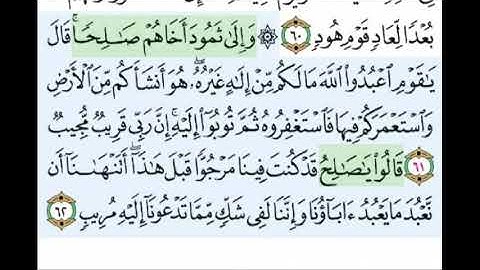 بُعْدًا لِّعَادٍ قَوْمِ هُودٍ ٦٠ ۞ وَإِلَىٰ ثَمُودَ أَخَاهُمْ صَـٰلِحًا ۚ قَالَ
يَـٰقَوْمِ ٱعْبُدُوا۟ ٱللَّهَ مَا لَكُم مِّنْ إِلَـٰهٍ غَيْرُهُۥ ۖ هُوَ أَنشَأَكُم مِّنَ ٱلْأَرْضِ
وَٱسْتَعْمَرَكُمْ فِيهَا فَٱسْتَغْفِرُوهُ ثُمَّ تُوبُوٓا۟ إِلَيْهِ ۚ إِنَّ رَبِّى قَرِيبٌ مُّجِيبٌ
٦١ قَالُوا۟ يَـٰصَـٰلِحُ قَدْ كُنتَ فِينَا مَرْجُوًّا قَبْلَ هَـٰذَآ ۖ أَتَنْهَىٰنَآ أَن
نَّعْبُدَ مَا يَعْبُدُ ءَابَآؤُنَا وَإِنَّنَا لَفِى شَكٍّ مِّمَّا تَدْعُونَآ إِلَيْهِ مُرِيبٍ ٦٢